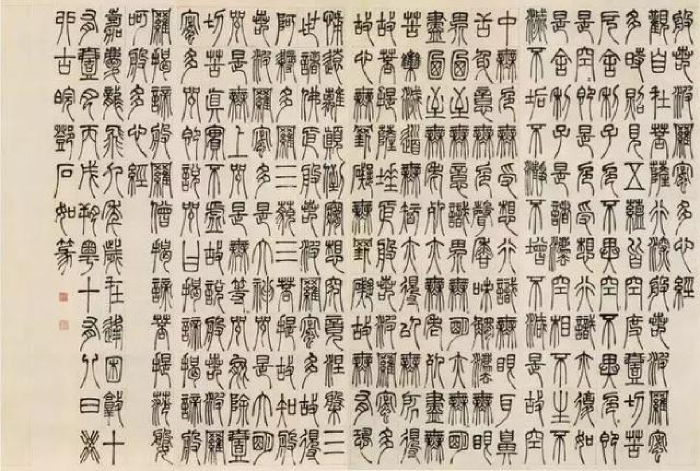 般若波羅蜜多心經
觀自在菩薩行深般若波羅蜜
多時照見五蘊皆空度壹切苦
厄舍利子色不異空空不異色色即
是空空即是色受想行識亦復如
是舍利子是諸法空相不生不
滅不垢不淨不增不減是故空
中無色無受想行識無眼耳鼻
舌身意無色聲香味觸法無眼
界乃至無意識界無無明亦無無明
盡乃至無老死亦無老死盡無
苦集滅道無智亦無得以無所得
故菩提薩埵依般若波羅蜜多
故心無罣礙無罣礙故無有恐
怖遠離顛倒夢想究竟涅槃三
世諸佛依般若波羅蜜多故得
阿耨多羅三藐三菩提故知般
若波羅蜜多是大神咒是大明
咒是無上咒是無等等咒能除壹
切苦真實不虛故說般若波羅
蜜多咒即說咒曰揭諦揭諦般
羅揭諦般羅僧揭諦菩提薩婆
呵般多心經
嘉慶龍飛八年歲在逢困敦十
有壹月丙戌朔粵十有八日
古皖鄧石如篆